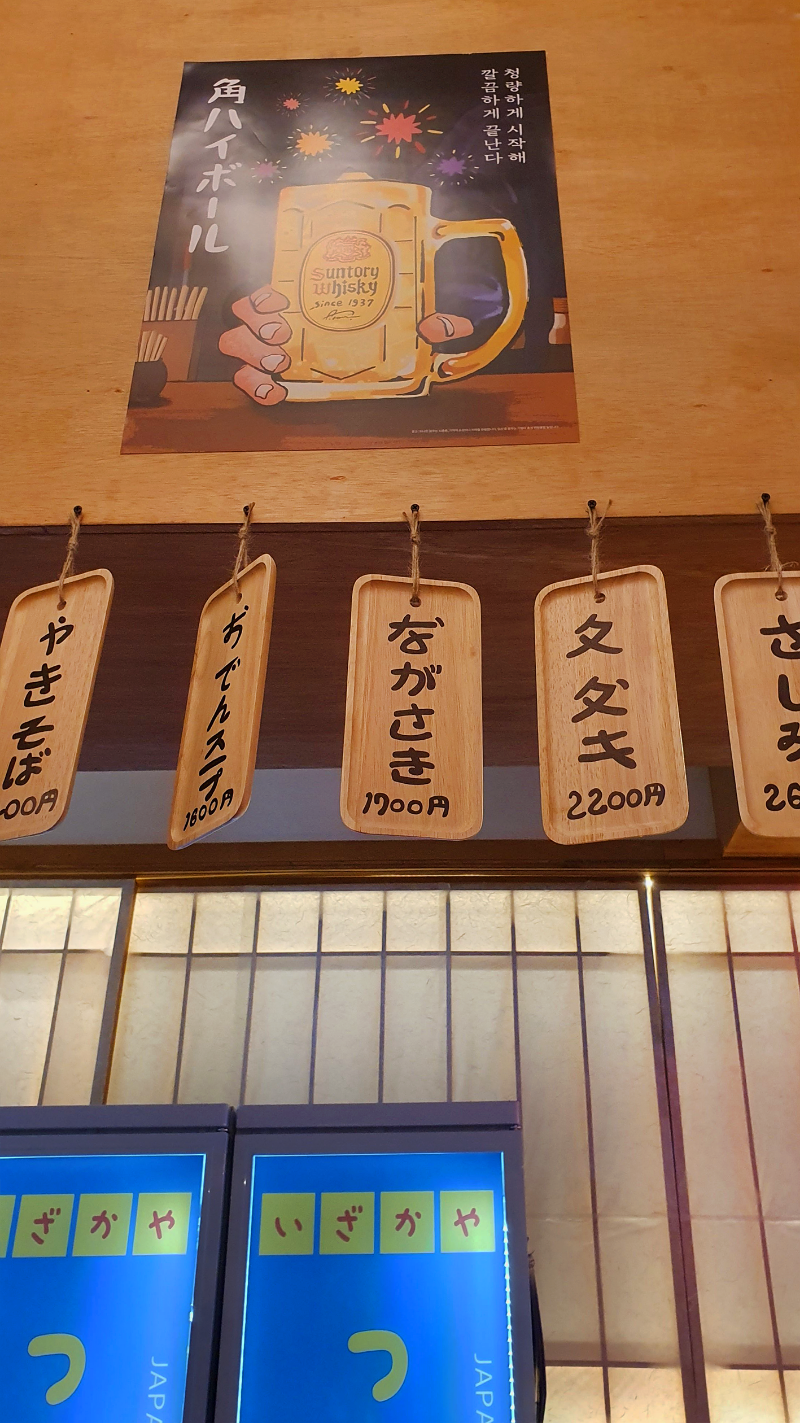 角ハイボール
청량하게 시작해
깔끔하게 끝난다
Suntory
Whisky
since 1937
やきそば
00円
おでんスープ
1800円
ながさき
1700円
タダキ
2200円
さしみ
26
ざかや
つ
JAPA
いざかや
つ
JAPA